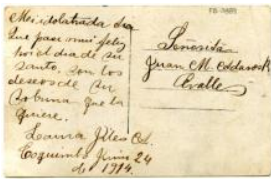 Mui idolatrada tia
Que pase mui feliz
hoi el dia de su
santo. son los
deseos de su
sobrina que la
quiere.
Laura
Coquimbo Junio 24
de 1914.
Señorita
Juan M.
Ovalle